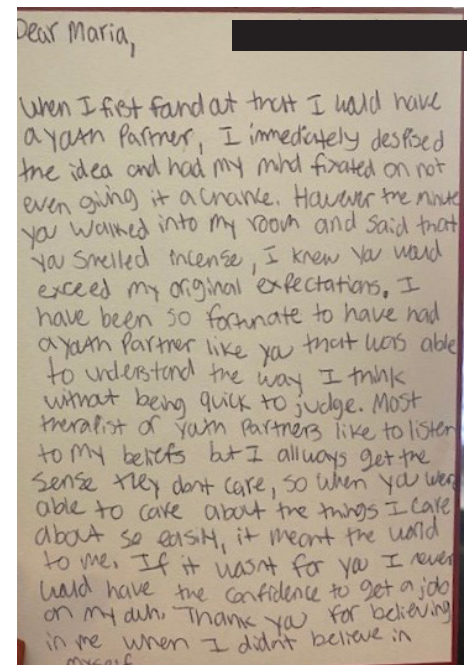 Dear Maria,
When I first found out that I would have
a youth Partner, I immediately despised
the idea and had my mind fixated on not
even giving it a chance. However the minute
you walked into my room and said that
you smelled incense, I knew you would
exceed my original expectations. I
have been so fortunate to have had
a youth Partner like you that was able
to understand the way I think
without being quick to judge. Most
therapist or youth Partners like to listen
to my beliefs but I allways get the
sense they dont care, so when you were
able to care about the things I care
about so easily, it meant the world
to me. If it wasnt for you I never
would have the confidence to get a job
on my own. Thank you for believing
in me when I didn't believe in
myself